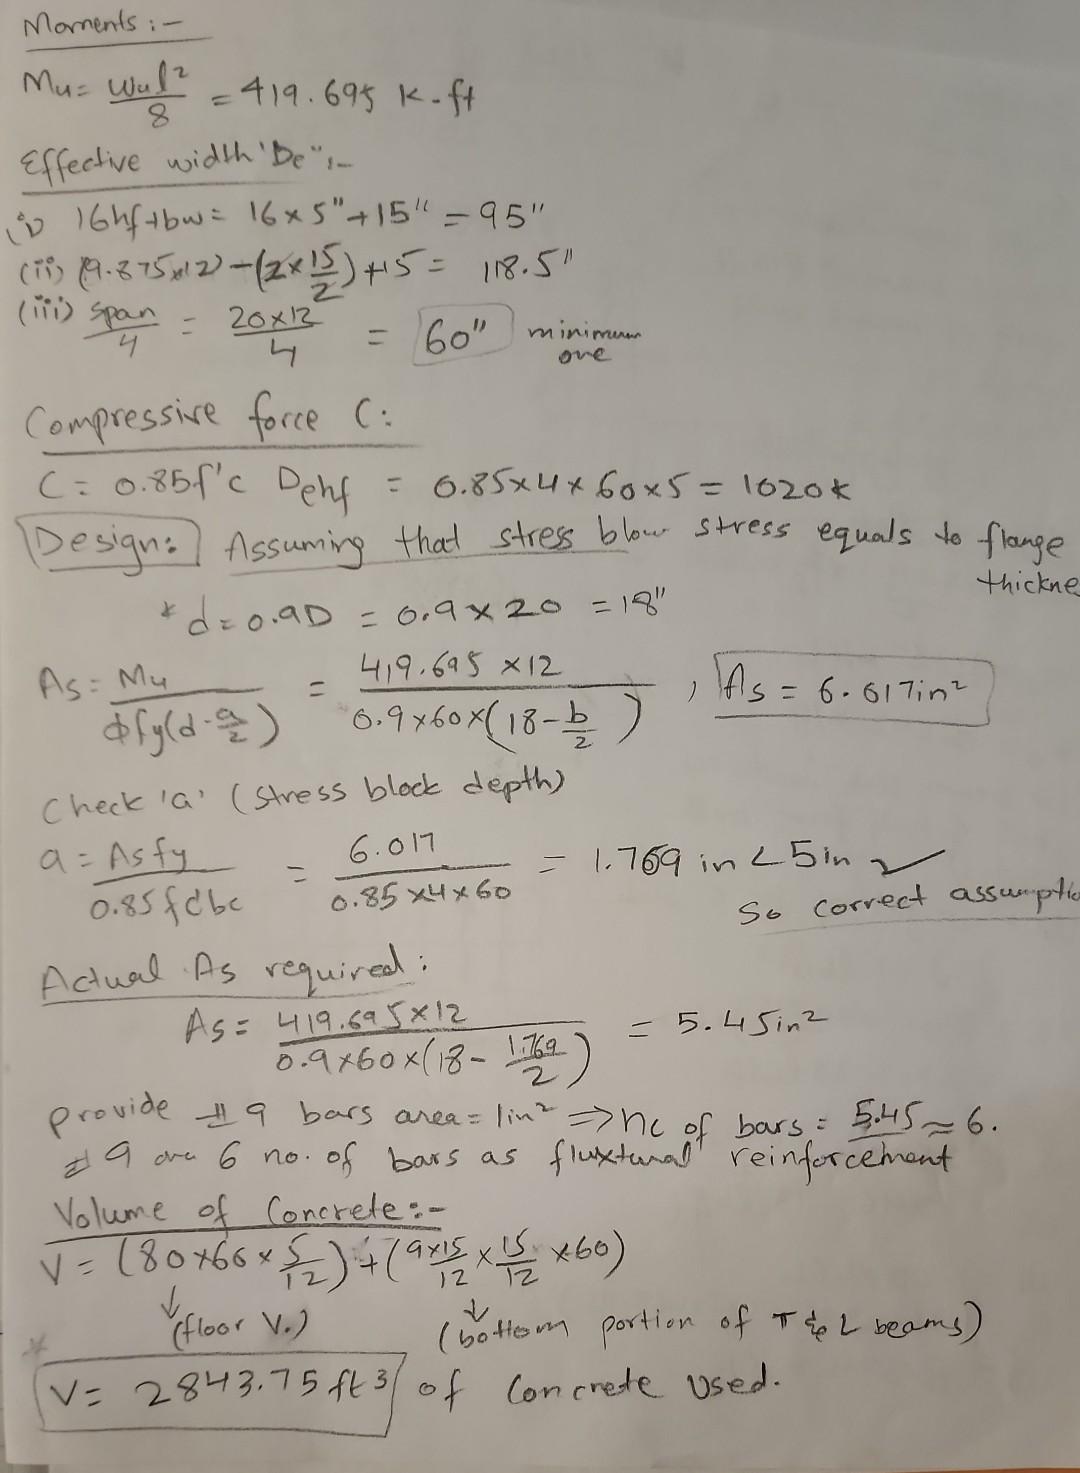 Moments :-
Mu = wul²/8 = 419.695 K-ft
Effective width 'be" :-
(i) 16hf+bw = 16 x 5" + 15" = 95"
(ii) (9.875x12) - (2x15/2) + 15 = 118.5"
(iii) span/4 = 20x12/4 = 60" minimum one
Compressive force C:
C = 0.85f'c behf = 0.85x4x60x5 = 1020k
Design: Assuming that stress blow stress equals to flange
thickne
* d = 0.9D = 0.9 x 20 = 18"
As = Mu/ϕfy(d-a/2) = 419.695 x12/0.9x60x(18-b/2) , As = 6.017in²
Check 'a' (stress block depth)
a = Asfy/0.85fc'bc = 6.017/0.85x4x60 = 1.769 in < 5in ✓
So correct assumptio
Actual As required:
As = 419.695x12/0.9x60x(18 - 1.769/2) = 5.45in²
provide #9 bars area = 1in² => no of bars = 5.45 ≈ 6.
#9 are 6 no. of bars as fluxtural reinforcement
Volume of Concrete :-
V = (80x60x5/12) + (9x15/12 x 15/12 x60)
↓ ↓
(floor V.) (bottom portion of T & L beams)
* V = 2843.75 ft3 of Concrete Used.